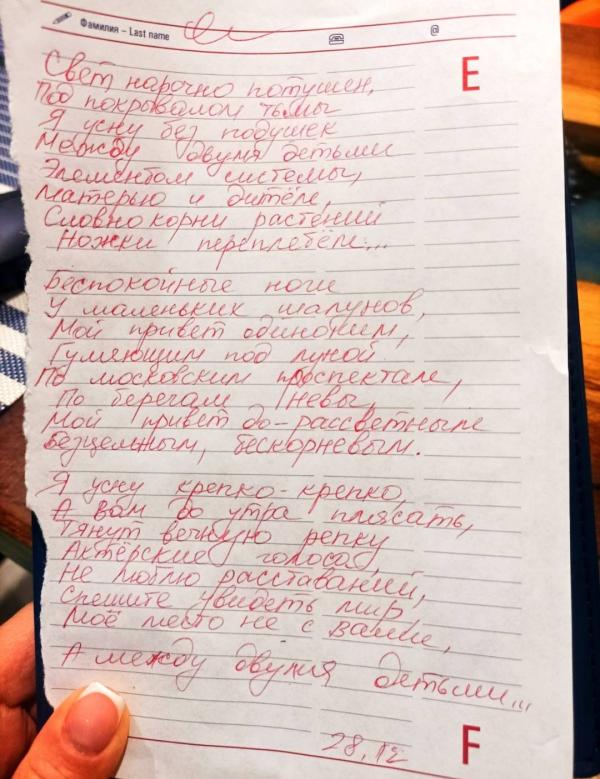 Фамилия – Last name
@
E
Свет нарочно потушен,
Под покрывалом тьмы
Я усну без подушек
Между двумя детьми
Элементом системы,
Матерью и дитём,
Словно корни растений
Ножки переплетём...
Беспокойные ноги
У маленьких шалунов,
Мой привет одиноким,
Гуляющим под луной
По московским проспектам,
По берегам Невы,
Мой привет до-рассветным
Безцельным, бескорневым.
Я усну крепко-крепко,
А вам до утра плясать,
Тянут вечную репку
Актёрские голоса,
Не люблю расставаний,
Спешите увидеть мир
Моё место не с вами,
А между двумя детьми...
28.12
F